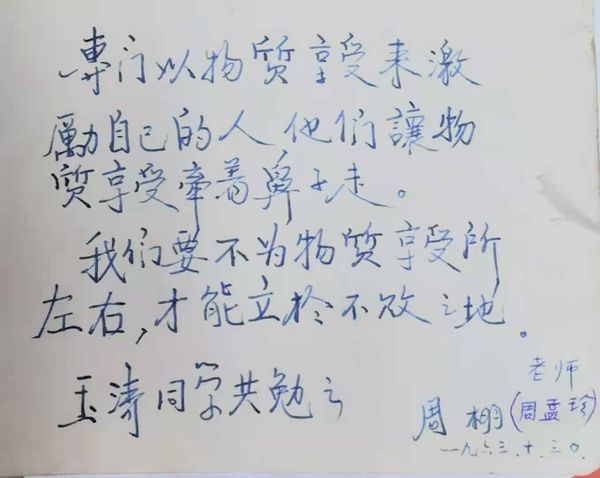 專门以物質享受来激
勵自己的人他们讓物
质享受牵着鼻子走。
我们要不为物质享受所
左右，才能立於不败之地。
玉涛同学共勉之
老师
周棚(周孟珍)
一九六三.十.三〇.